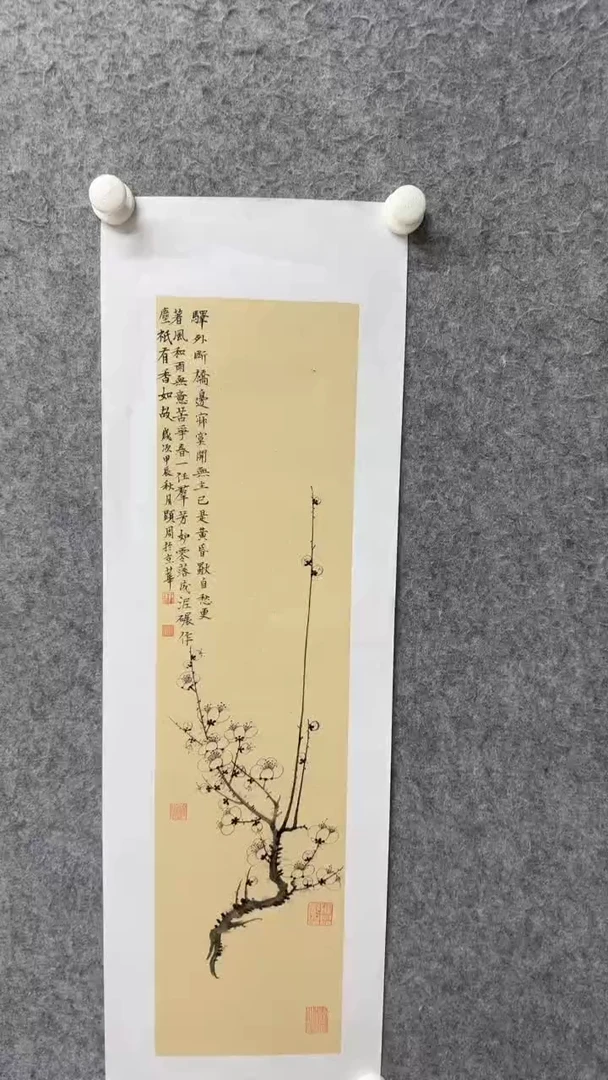 驛外斷橋邊寂寞開無主已是黃昏獨自愁更
著風和雨無意苦爭春一任羣芳妒零落成泥碾作
塵祇有香如故歲次甲辰秋月周於京華